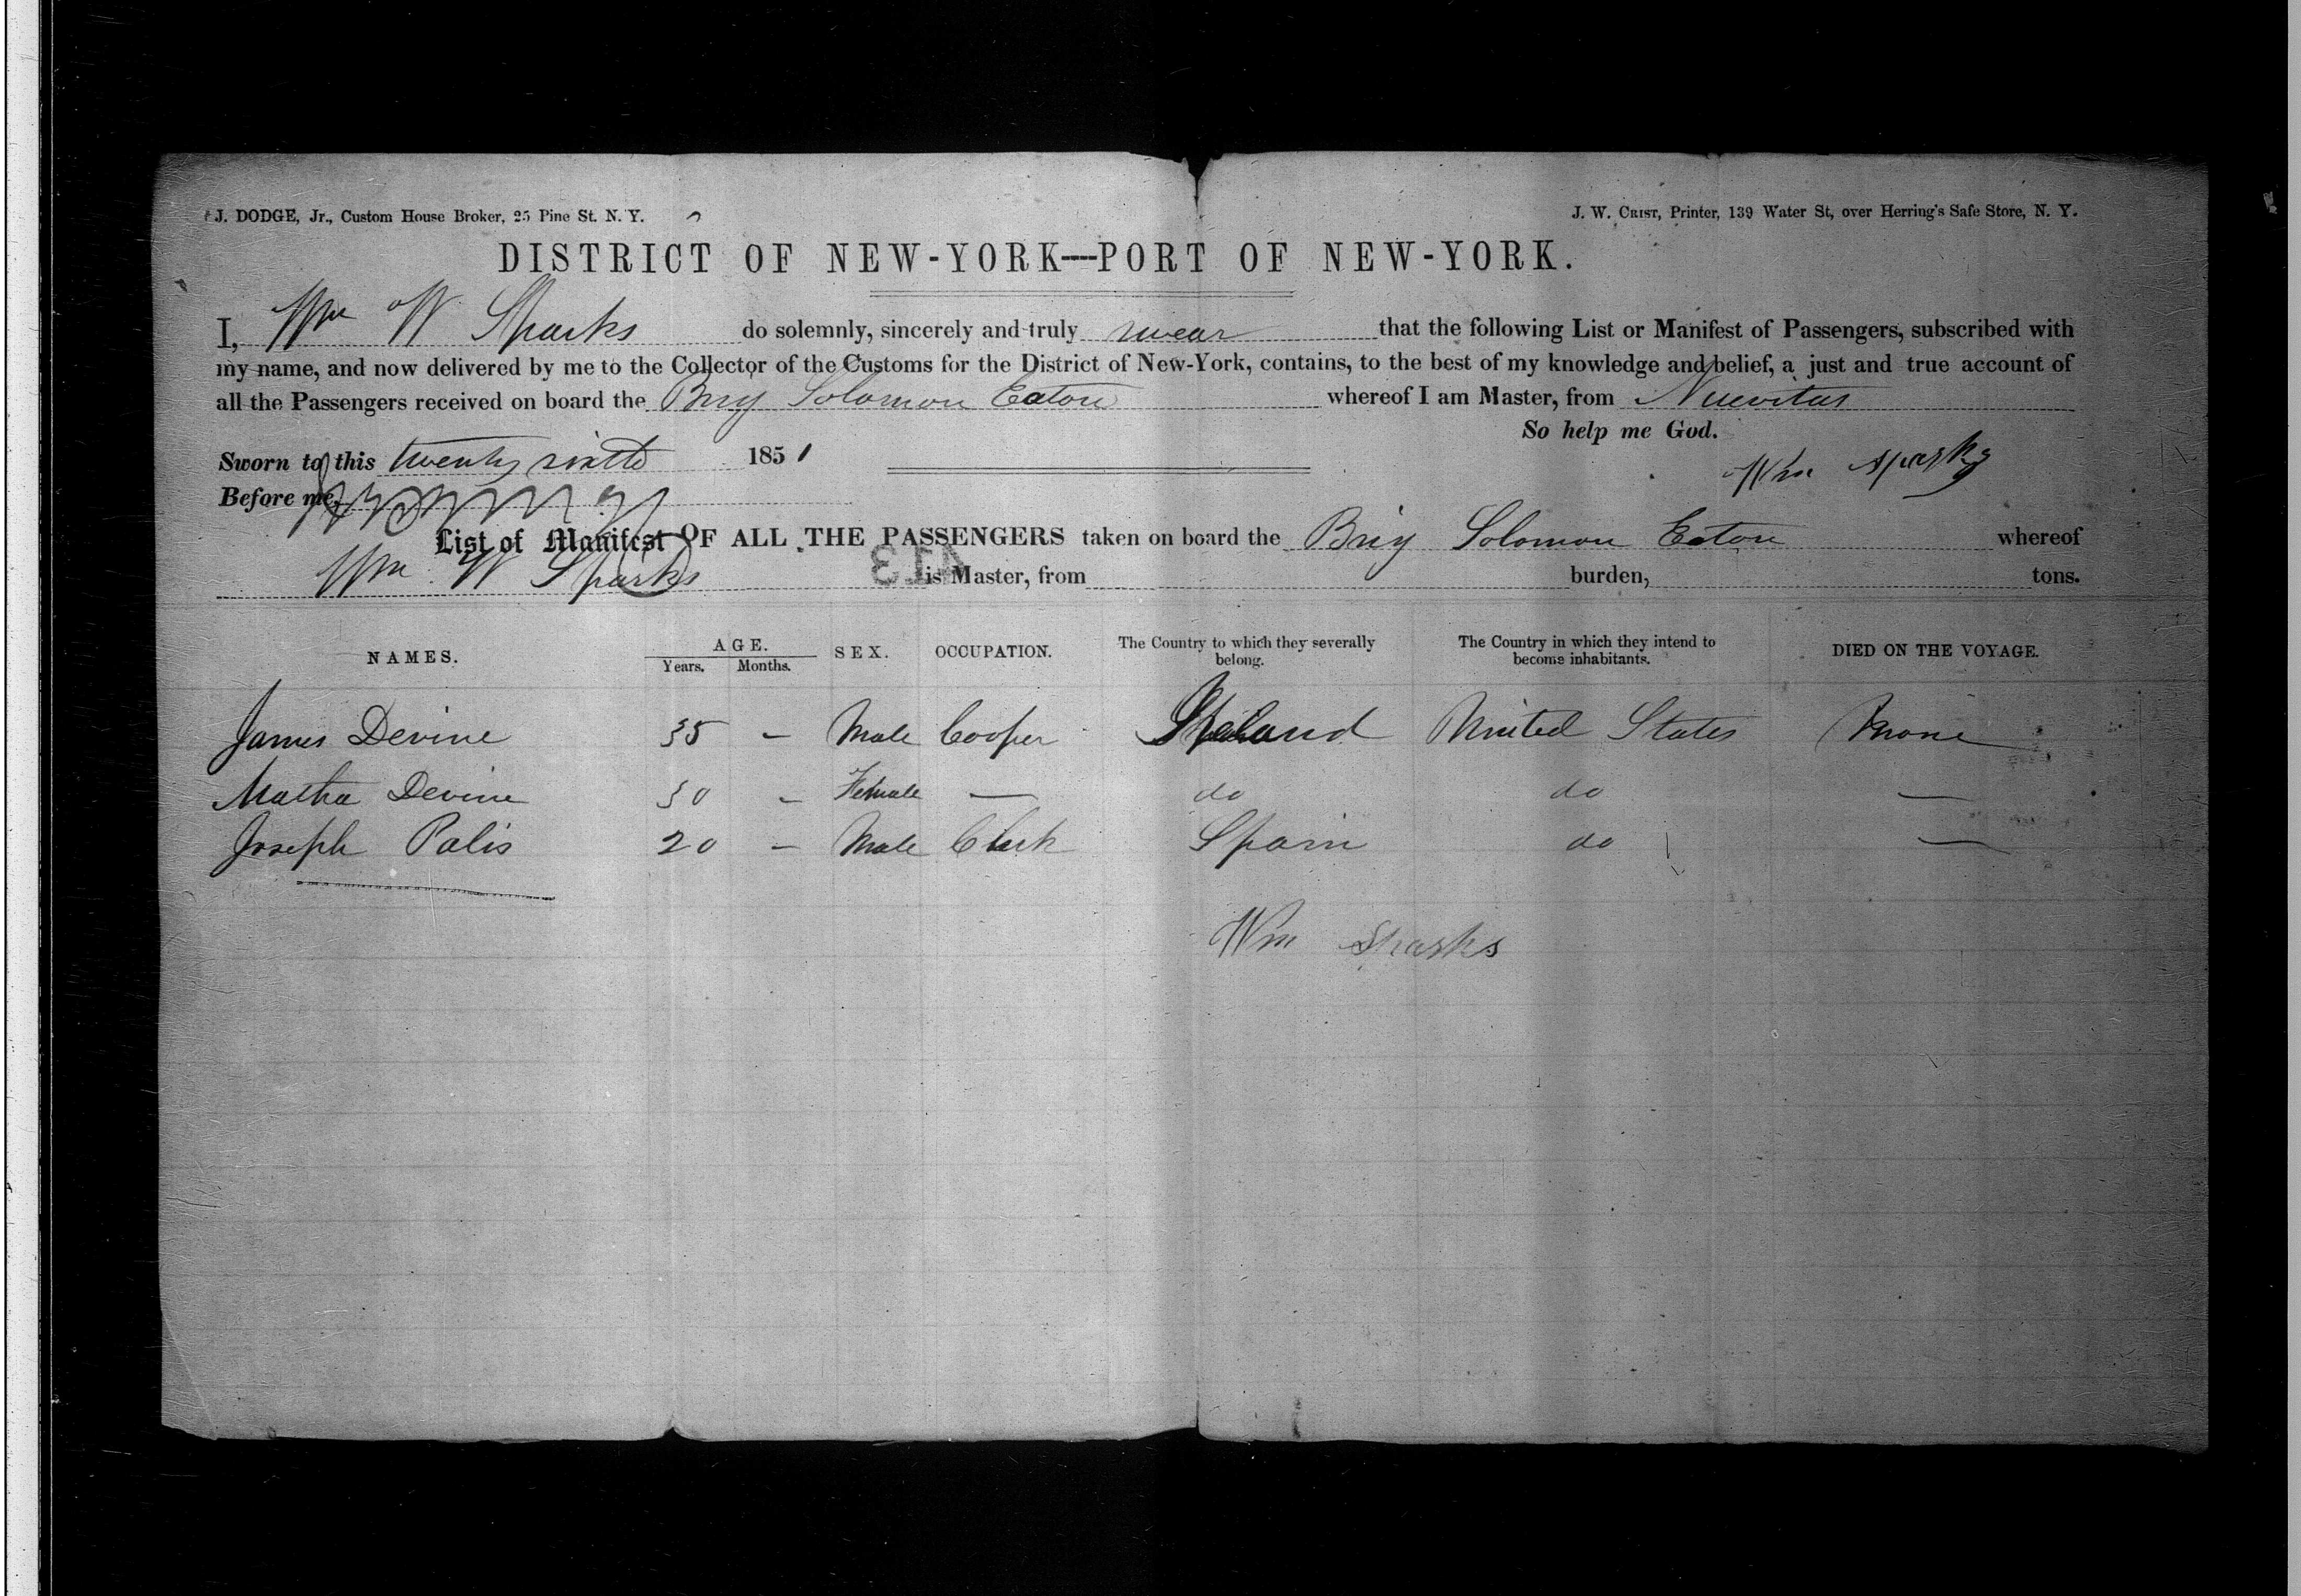 J. DODGE, Jr., Custom House Broker, 25 Pine St. N. Y.
J. W. CRIST, Printer, 139 Water St, over Herring's Safe Store, N. Y.
DISTRICT OF NEW-YORK—PORT OF NEW-YORK.
I, Wm W Sparks do solemnly, sincerely and truly swear that the following List or Manifest of Passengers, subscribed with
my name, and now delivered by me to the Collector of the Customs for the District of New-York, contains, to the best of my knowledge and belief, a just and true account of
all the Passengers received on board the Brig Solomon Eaton whereof I am Master, from Nuevitas
So help me God.
Sworn to this twenty sixth 1851
Wm Sparks
Before me,
List of Manifest OF ALL THE PASSENGERS taken on board the Brig Solomon Eaton whereof
Wm W Sparks is Master, from burden, tons.
413
NAMES. AGE. SEX. OCCUPATION. The Country to which they severally belong. The Country in which they intend to become inhabitants. DIED ON THE VOYAGE.
Years. Months.
James Devine 35 — Male Cooper Ireland United States None
Matha Devine 30 — Female — do do —
Joseph Palis 20 — Male Clerk Spain do —
Wm Sparks